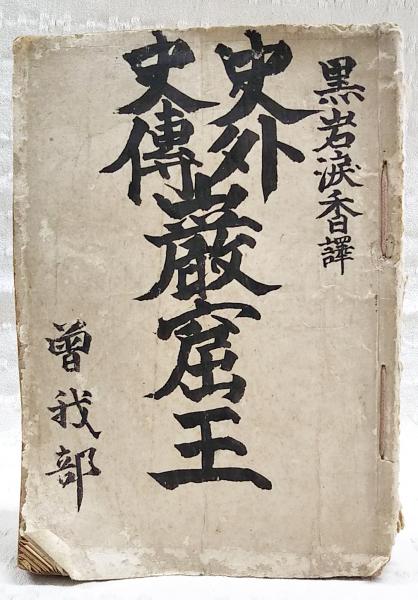 黒岩涙香譯
史外
史傳
巌窟王
曽我部